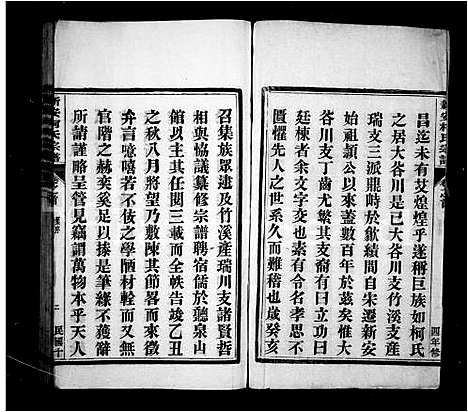 昌迄未有艾煌煌乎遂稱巨族如柯氏
之居大谷川是已大谷川支竹溪支產
瑞支三派縣時於歙績間自宋遷新安
始祖頴公以來蓋數百年於茲矣惟大
谷川支丁齒尤繁其支裔有日命名者
廷棟者余文字交也有令名孝思不
匱懼先人之世系久而難稽也歲癸亥
召集族眾逮及竹溪產瑞川支諸賢哲
相與協議纂修宗譜聘宿儒於聽泉山
館以主其任閱三載而全帙告竣乙丑
之秋八月將望乃敷陳其顛末來徵余
弁言噫嘻若不才之學陋材輇而又無
官階之赫奕奚足以揚是筆緣不獲違
所請謹略呈管見竊謂萬物本乎天人
新安柯氏宗譜
卷首
二
民國十
四年修